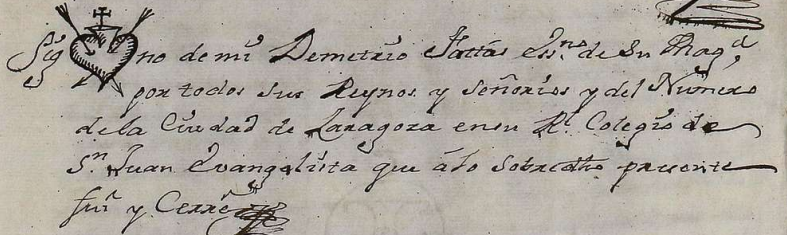 Sig no de mi Demetrio Fattás Ess.no de Su Mag.d
por todos sus Reynos y Señorios y del Número
de la Ciudad de Zaragoza en su Rl Colegio de
S.n Juan Evangelista que á lo Sobredho presente
fui y Cerré